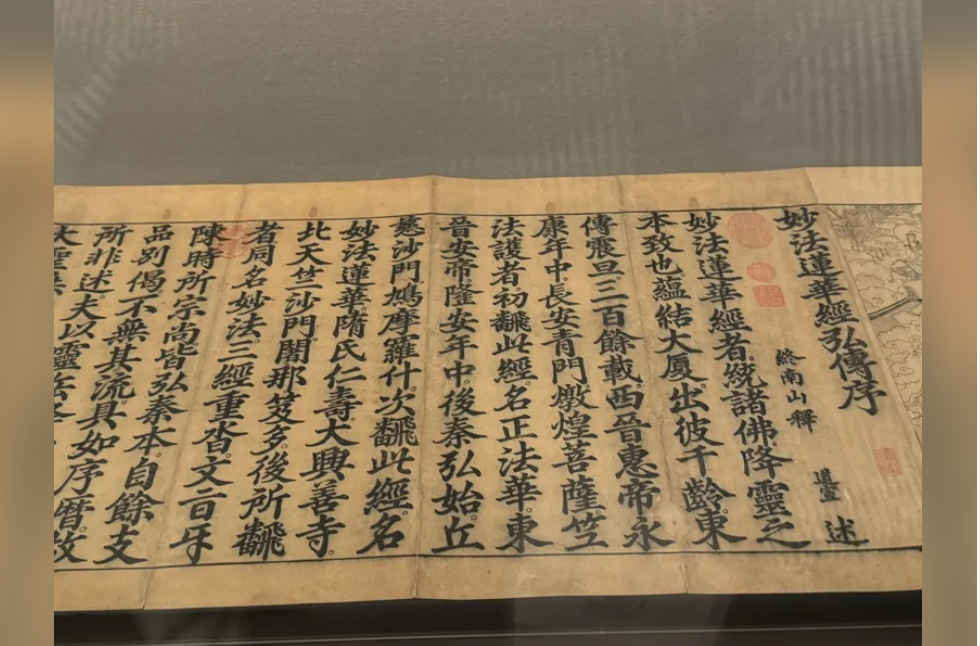 妙法蓮華經弘傳序
終南山釋 道宣 述
妙法蓮華經者統諸佛降靈之
本致也蘊結大厦出彼千齡東
傳震旦三百餘載西晉惠帝永
康年中長安青門燉煌菩薩竺
法護者初飜此經名正法華東
晉安帝隆安年中後秦弘始丘
慈沙門鳩摩羅什次飜此經名
妙法蓮華隋氏仁壽大興善寺
北天竺沙門闍那笈多後所飜
者同名妙法三經重沓文旨互
陳時所宗尚皆弘秦本自餘支
品別偈不無其流具如序曆故
所非述夫以靈岳
大聖